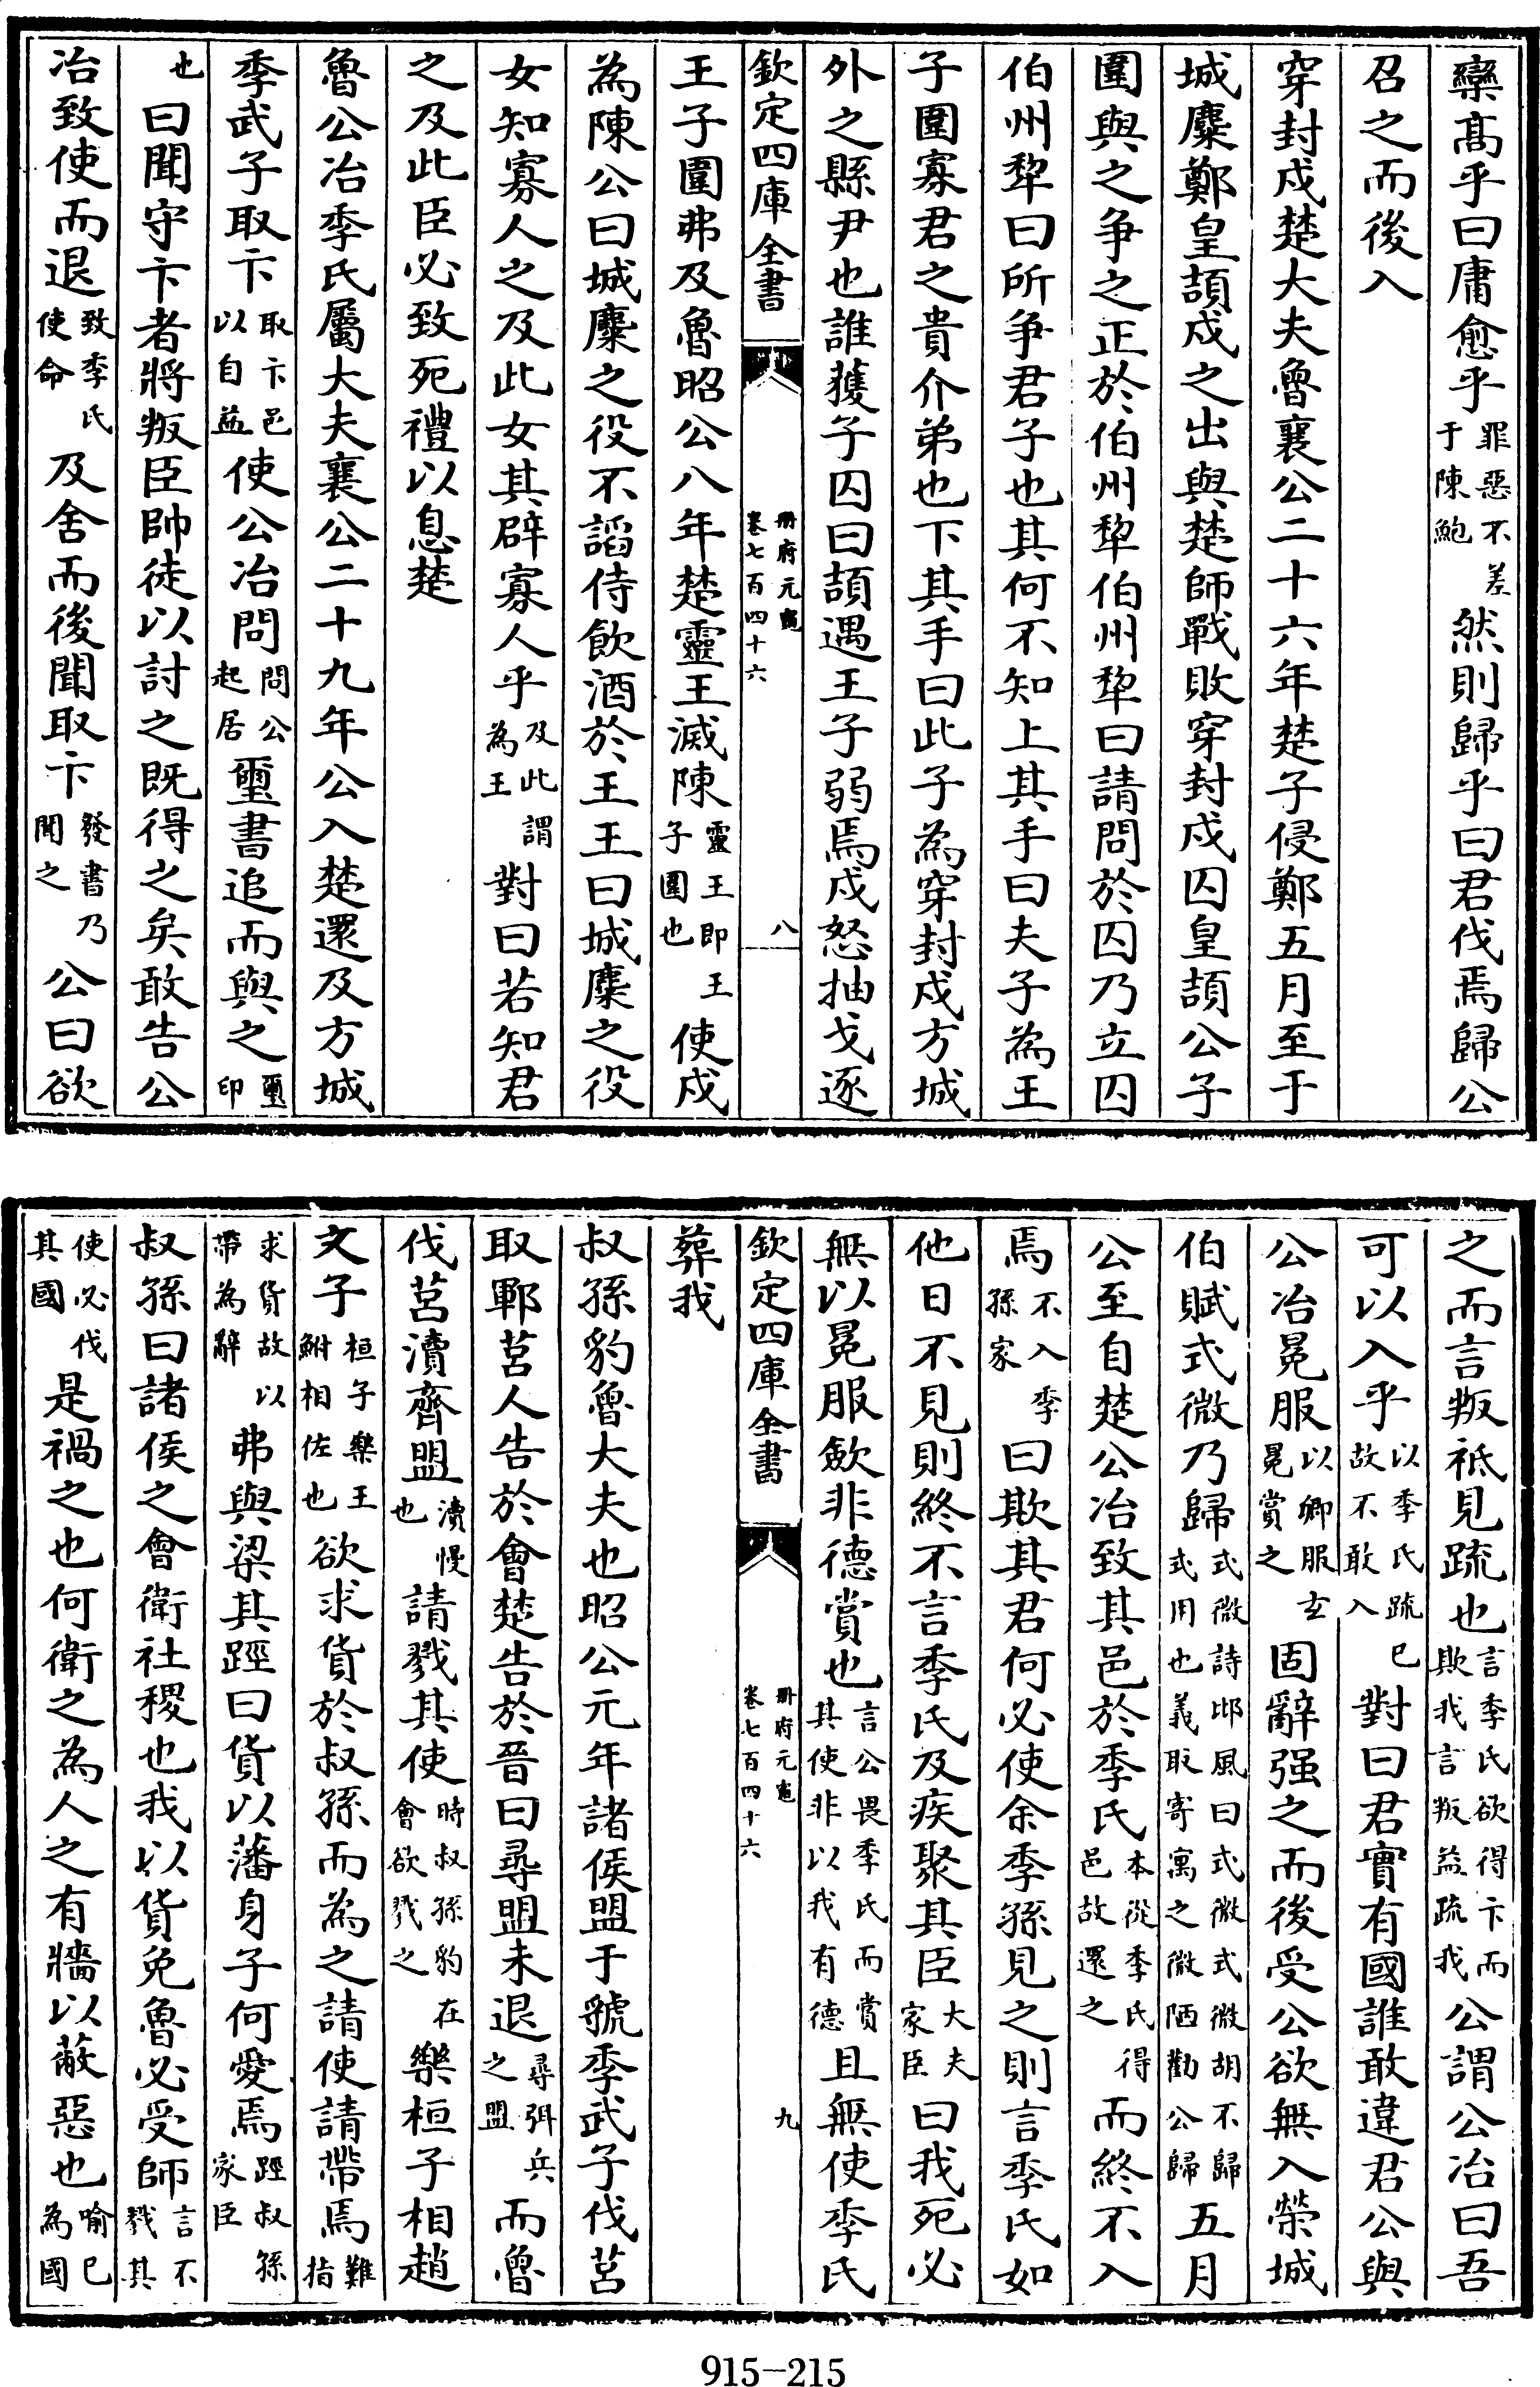 欒髙乎曰庸愈乎罪惡不差于陳鮑然則歸乎曰君伐焉歸公
召之而後入
穿封戍楚大夫魯襄公二十六年楚子侵鄭五月至于
城麇鄭皇頡戍之出與楚師戰敗穿封戍囚皇頡公子
圍與之争之正於伯州犂伯州犂曰請問於囚乃立囚
伯州犂曰所争君子也其何不知上其手曰夫子為王
子圍寡君之貴介弟也下其手曰此子為穿封戍方城
外之縣尹也誰獲子囚曰頡遇王子弱焉戍怒抽戈逐
欽定四庫全書 冊府元龜卷七百四十六 八
王子圍弗及魯昭公八年楚靈王滅陳靈王即王子圍也使戍
為陳公曰城麇之役不謟侍飲酒於王王曰城麇之役
女知寡人之及此女其辟寡人乎及此謂為王對曰若知君
之及此臣必致死禮以息楚
魯公冶季氏屬大夫襄公二十九年公入楚還及方城
季武子取卞取卞邑以自益使公冶問問公起居璽書追而與之璽印
也曰聞守卞者將叛臣帥徒以討之既得之矣敢告公
冶致使而退致季氏使命及舍而後聞取卞發書乃聞之公曰欲
之而言叛祗見疏也言季氏欲得卞而欺我言叛益疏我公謂公冶曰吾
可以入乎以季氏疏已故不敢入對曰君實有國誰敢違君公與
公冶冕服以卿服玄冕賞之固辭强之而後受公欲無入榮城
伯賦式微乃歸式微詩邶風曰式微式微胡不歸式用也義取寄寓之微陋勸公歸五月
公至自楚公冶致其邑於季氏本從季氏得邑故還之而終不入
焉不入季孫家曰欺其君何必使余季孫見之則言季氏如
他日不見則終不言季氏及疾聚其臣大夫家臣曰我死必
無以冕服歛非德賞也言公畏季氏而賞其使非以我有德且無使季氏
欽定四庫全書 冊府元龜卷七百四十六 九
葬我
叔孫豹魯大夫也昭公元年諸侯盟于虢季武子伐莒
取鄆莒人告於會楚告於晉曰尋盟未退尋弭兵之盟而魯
伐莒瀆齊盟瀆慢也請戮其使時叔孫豹在會欲戮之樂桓子相趙
文子桓子樂王鮒相佐也欲求貨於叔孫而為之請使請帶焉難指
求貨故以帶為辭弗與梁其踁曰貨以藩身子何愛焉踁叔孫家臣
叔孫曰諸侯之會衛社稷也我以貨免魯必受師言不戮其
使必伐其國是禍之也何衛之為人之有牆以蔽惡也喻已為國
915-215